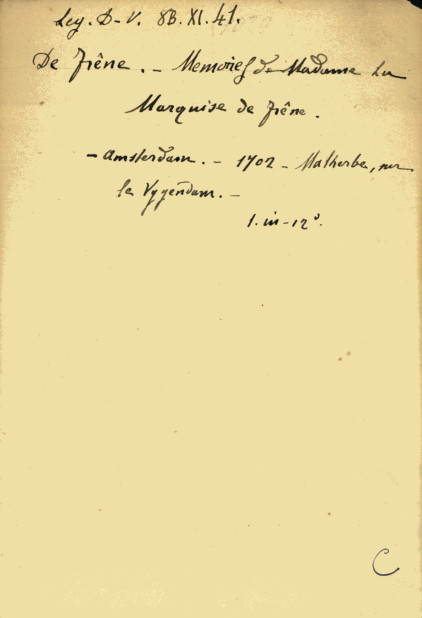 Leg. D-V. 8B. XI. 41.
De Frêne. _ Memoires de Madame La
Marquise de Frêne.
- Amsterdam. - 1702 - Malherbe, sur
le Vygendam. -
1. in-12°.
C